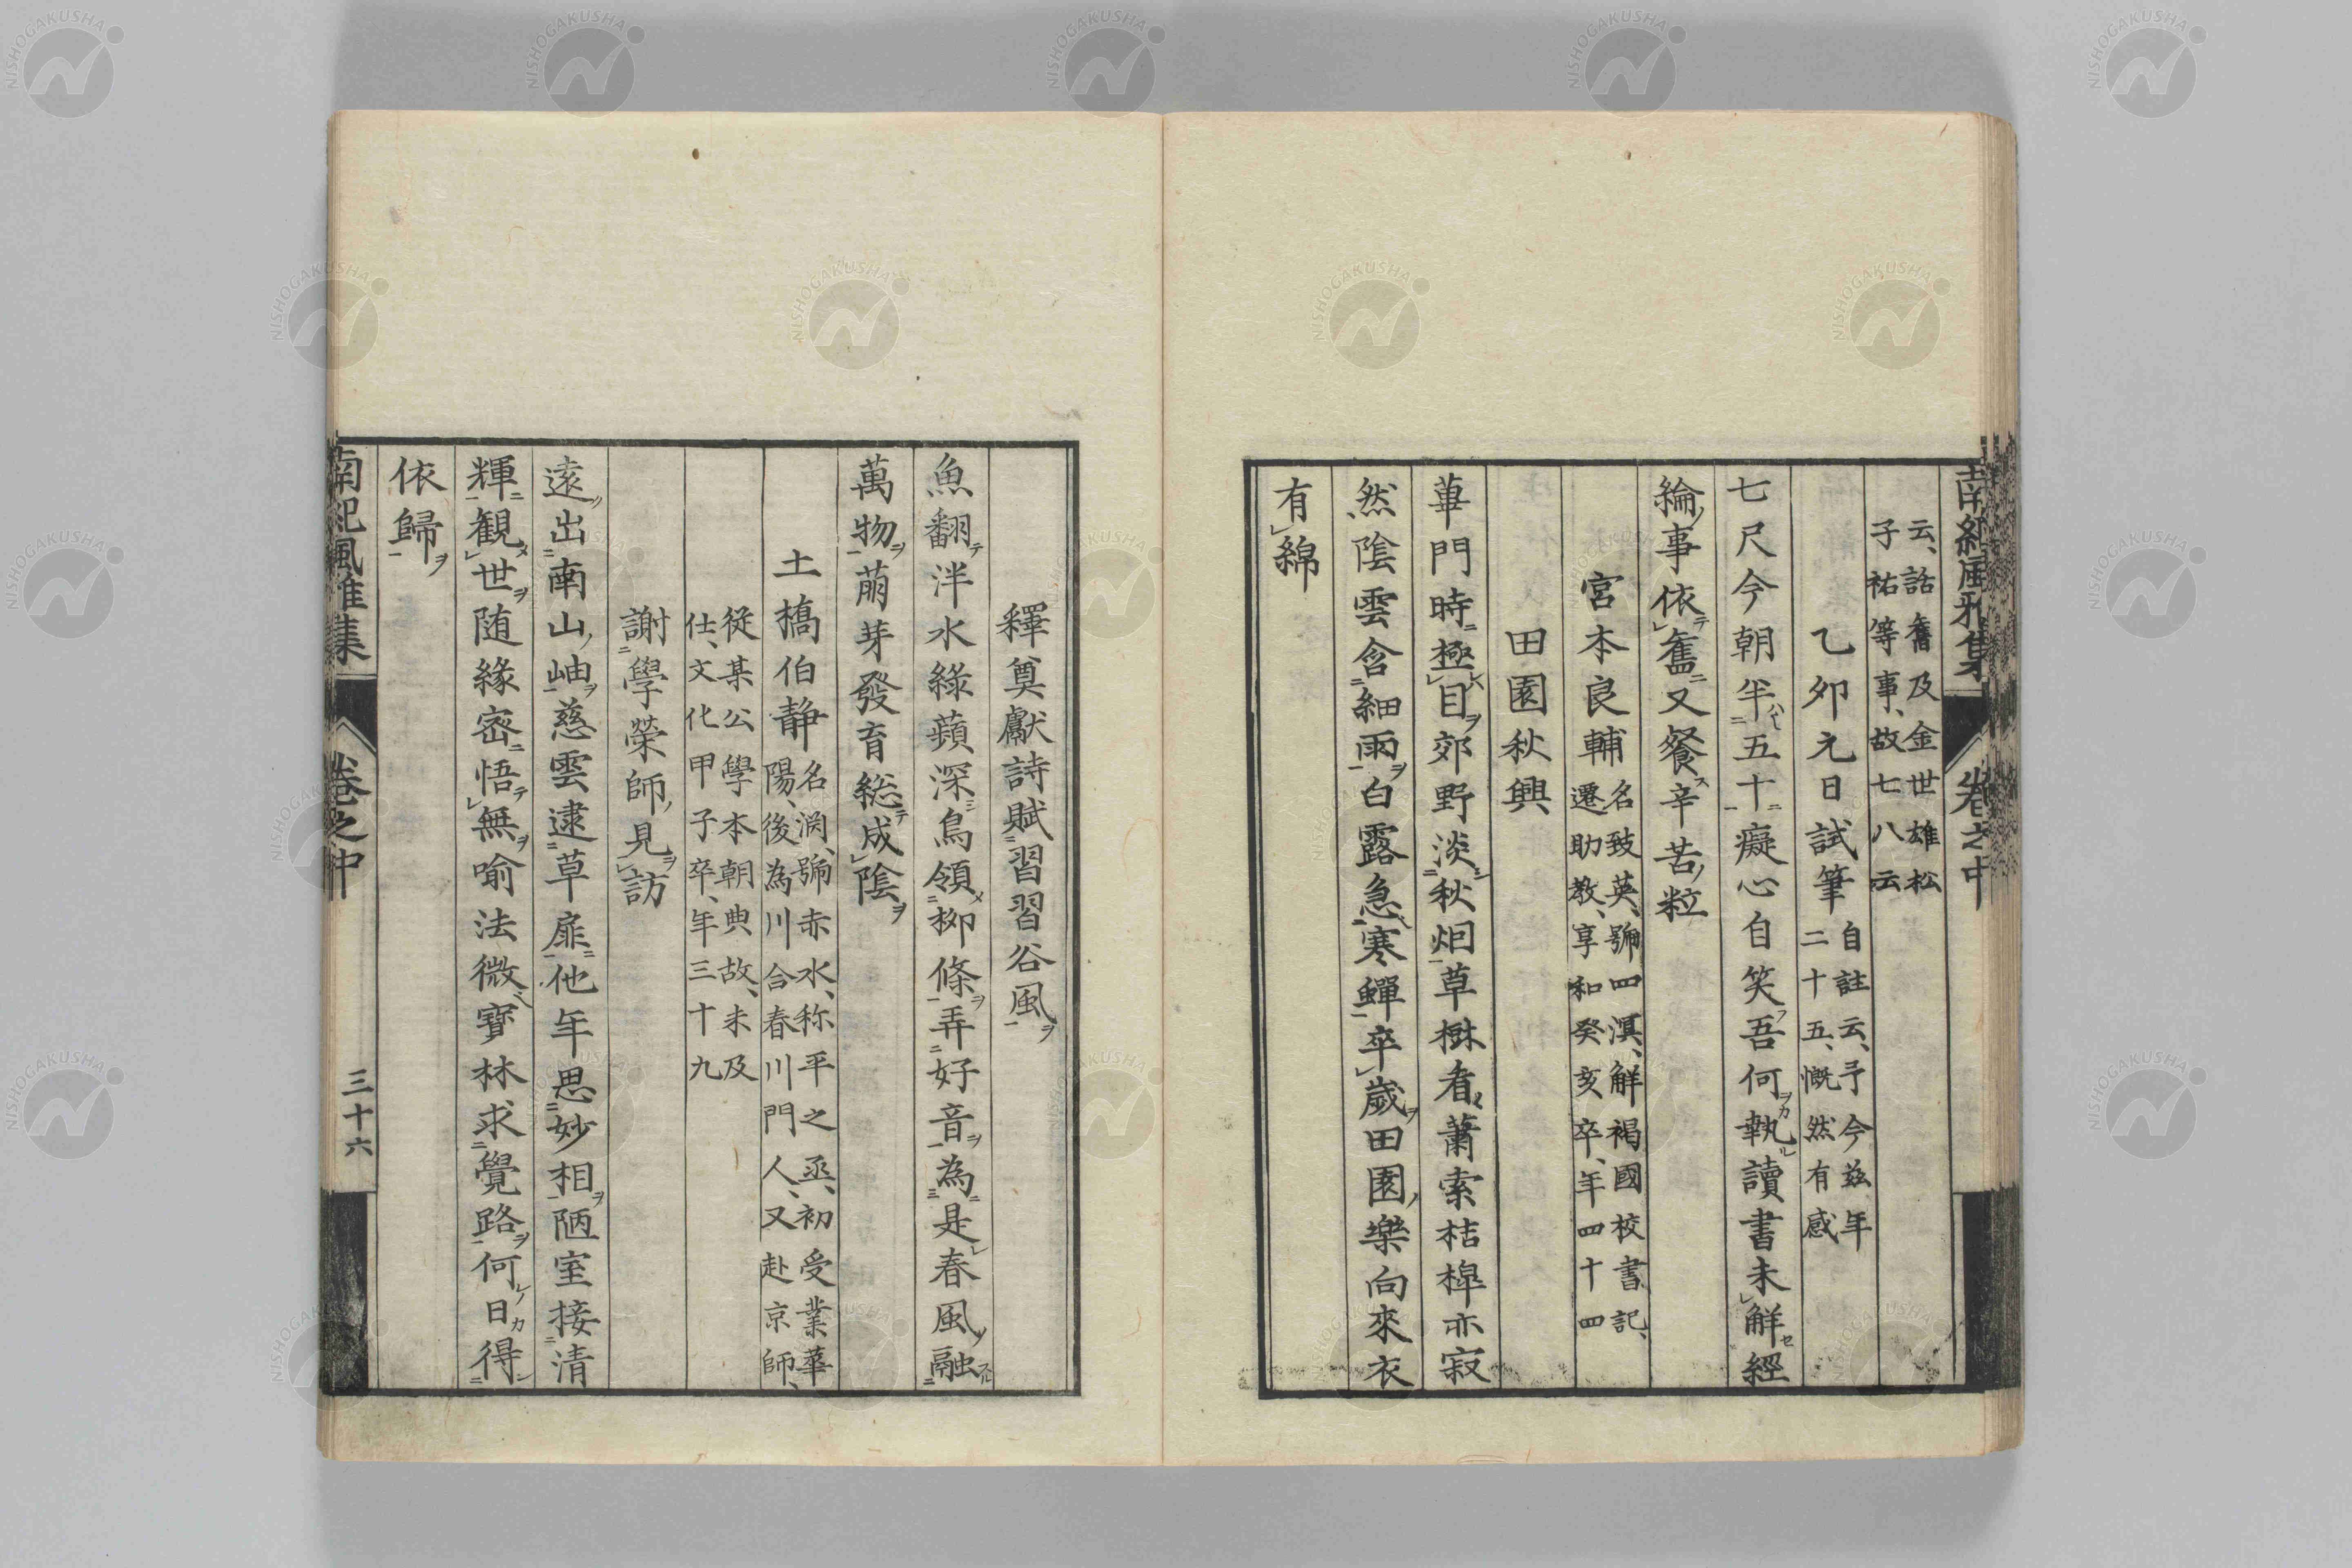 南紀風雅集 卷之中
云、話舊及金世雄松
子祐等事、故七八云
乙卯元日試筆 自註云、予今茲年
二十五、慨然有感
七尺今朝半五十癡心自笑吾何執讀書未解經
綸事依舊又餐辛苦粒
宮本良輔 名致英、號四溟、解褐國校書記、
遷助教、享和癸亥卒、年四十四
田園秋興
蓽門時極目郊野淡秋烟草樹看蕭索桔槹亦寂
然陰雲含細雨白露急寒蟬卒歲田園樂向來衣
有綿
釋奠獻詩賦習習谷風
魚翻泮水綠蘋深鳥領柳條弄好音為是春風融
萬物萠芽發育総成陰
土橋伯靜 名渕、號赤水、称平之丞、初受業華
陽、後為川合春川門人、又赴京師、
從某公學本朝典故、未及
仕、文化甲子卒、年三十九
謝學榮師見訪
遠出南山岫慈雲逮草扉他年思妙相陋室接清
輝観世随緣密悟無喻法微寶林求覺路何日得
依歸
南紀風雅集 卷之中 三十六
NISHOGAKUSHA